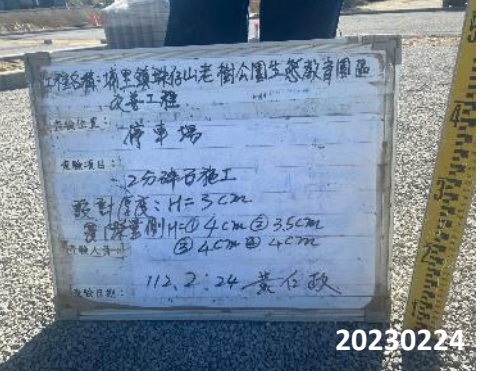 工程名稱:埔里鎮珠仔山老樹公園生態教育園區
改善工程
查驗位置:
停車場
查驗項目:
2分碎石施工
設計厚度:H=3cm
實際量測H=①4cm②3.5cm
③4cm④4cm
查驗人員:
查驗日期:
112.2.24 黃仁政
5
4
3
2
1
20230224